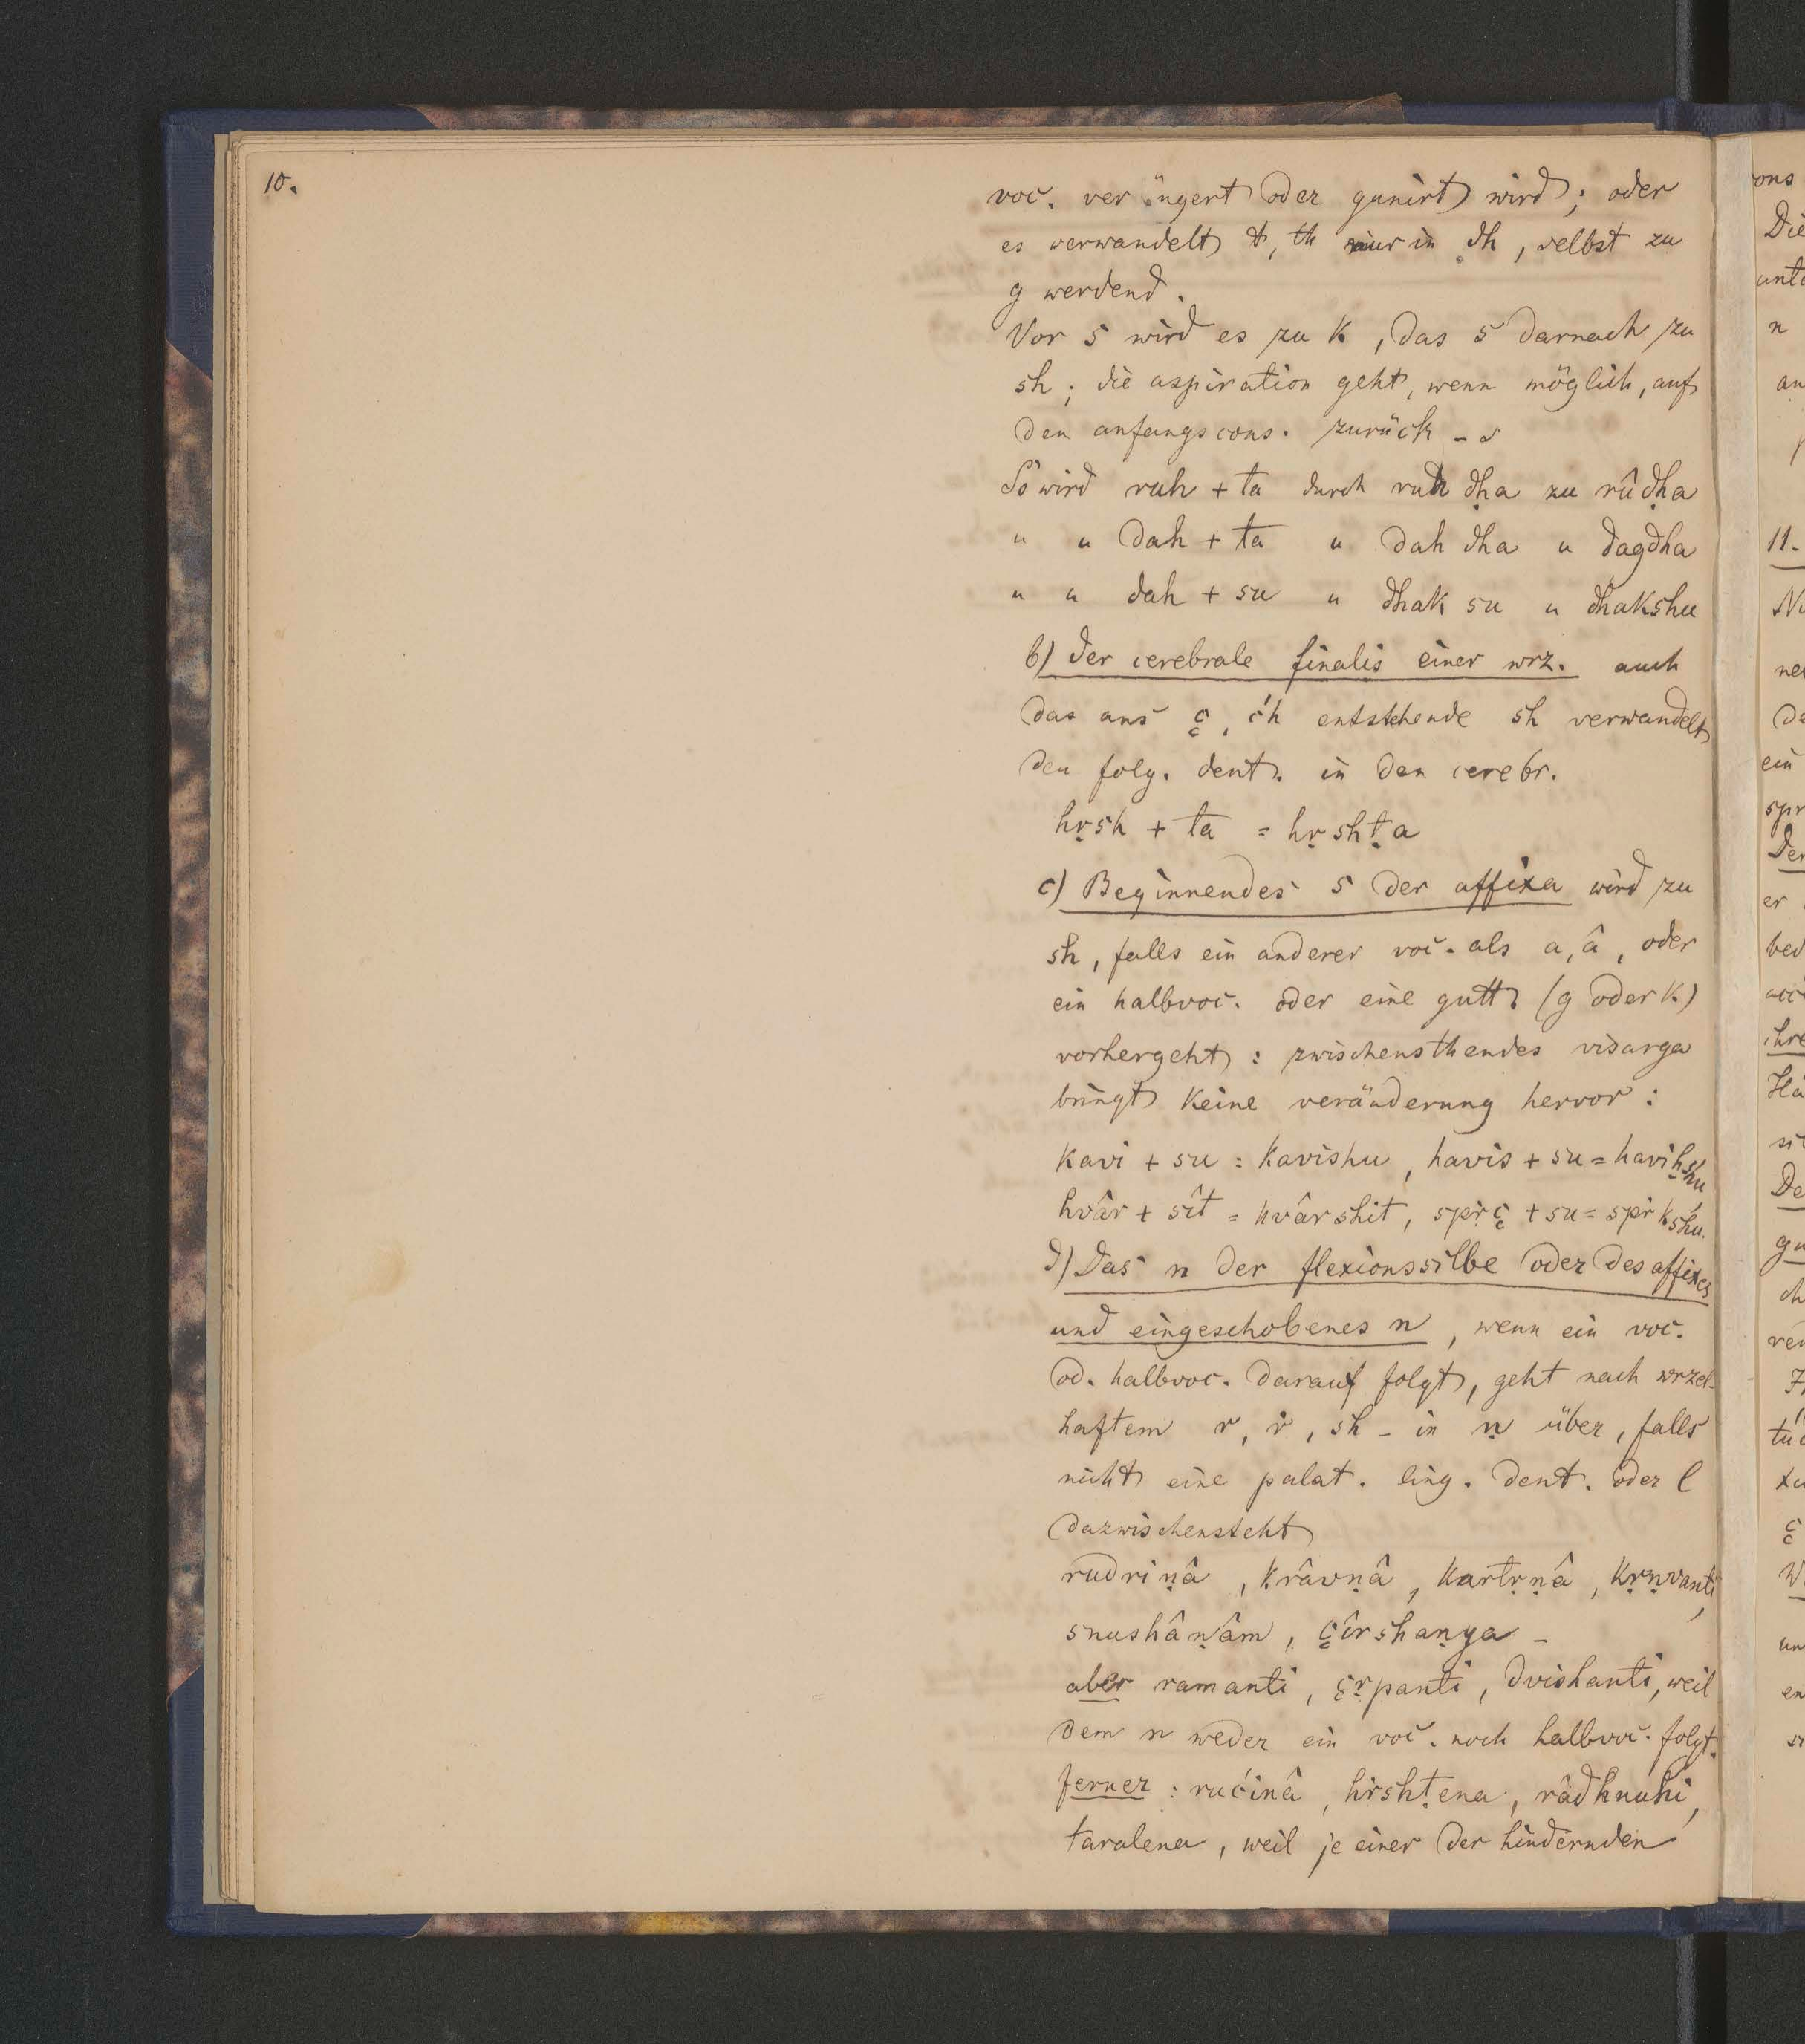 10.
voc. verlängert oder gunirt wird; oder
es verwandelt t, th nur in dh, selbst zu
g werdend.
Vor s wird es zu k, das s darnach zu
sh; die aspiration geht, wenn möglich, auf
den anfangscons. zurück -
So wird ruh + ta durch ruh ḍha zu rûḍha
" " dah + ta " dah dha " dagdha
" " dah + su " dhak su " dhakshu
b) der cerebrale finalis einer wrz. auch
das aus ç, ćh entstehende sh verwandelt
den folg. dent. in den cerebr.
hṛsh + ta = hṛshṭa
c) Beginnendes s der affixa wird zu
sh, falls ein anderer voc. als a, â, oder
ein halbvoc. oder eine gutt. (g oder k)
vorhergeht: zwischensthendes visarga
bringt keine veränderung hervor:
kavi + su = kavishu, havis + su = haviḥshu
hvâr + sît = hvârshit, spṛç + su = spṛkshu.
d) Das n der flexionssilbe oder des affixes
und eingeschobenes n, wenn ein voc.
od. halbvoc. darauf folgt, geht nach wrzel-
haftem r, ṛ, sh - in ṇ über, falls
nicht eine palat. ling. dent. oder l
dazwischensteht
rudriṇâ, krâvṇâ, kartṛṇâ, kṛṇvanti,
snushâṇâm, çîrshaṇya -
aber ramanti, çṛpanti, dvishanti, weil
dem n weder ein voc. noch halbvoc. folgt.
ferner: rućinâ, hṛshṭena, râdhnuhi,
taralena, weil je einer der hindernden
ons
Die
n
11.
ein
er
ihre
De